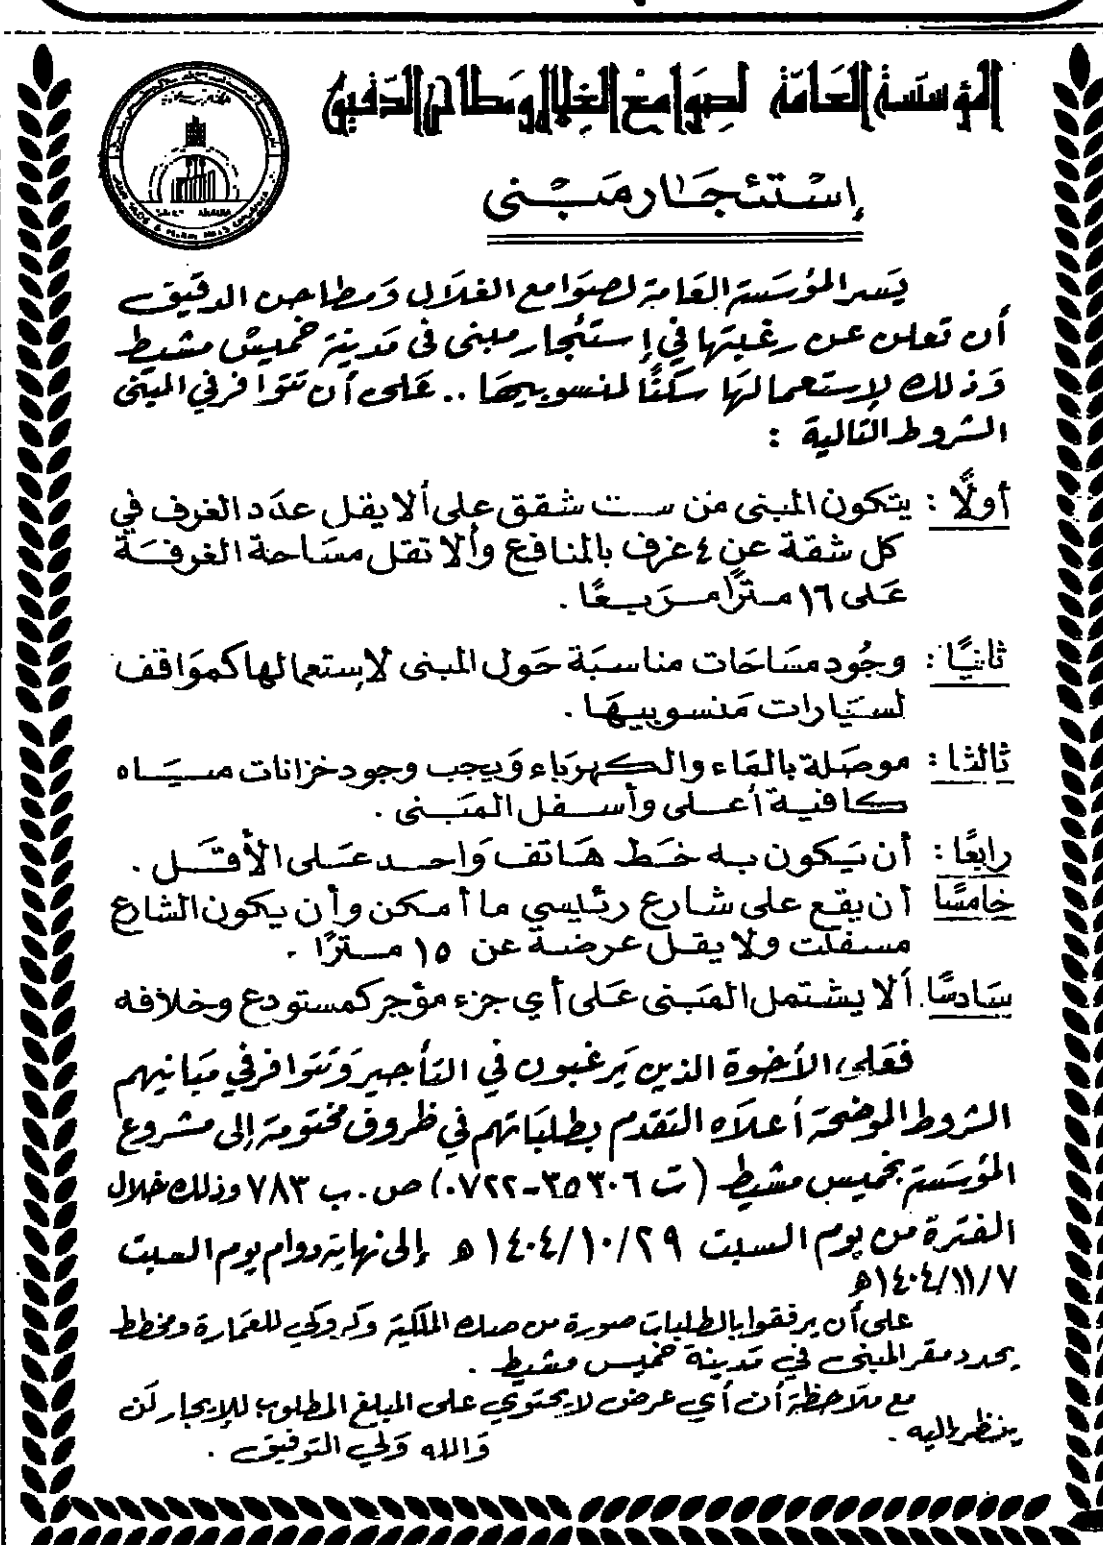 المؤسسة العامة لصوامع الغلال ومطاحن الدقيق
إستئجار مبنى
يسر المؤسسة العامة لصوامع الغلال ومطاحن الدقيق
أن تعلن عن رغبتها في إستئجار مبنى فى مدينة خميس مشيط
وذلك لإستعمالها سكنًا لمنسوبيها .. على أن تتوافر في المبنى
الشروط التالية :
أولًا : يتكون المبنى من ست شقق على ألا يقل عدد الغرف في
كل شقة عن ٤ غرف بالمنافع وألا تقل مساحة الغرفة
على ١٦ مترًا مربعًا .
ثانيًا : وجود مساحات مناسبة حول المبنى لإستعمالها كمواقف
لسيارات منسوبيها .
ثالثا : موصلة بالماء والكهرباء ويجب وجود خزانات مياه
كافية أعلى وأسفل المبنى .
رابعًا : أن يكون به خط هاتف واحد على الأقل .
خامسًا أن يقع على شارع رئيسي ما أمكن وأن يكون الشارع
مسفلت ولا يقل عرضة عن ١٥ مترًا .
سادسًا . ألا يشتمل المبنى على أي جزء مؤجر كمستودع وخلافه
فعلى الأخوة الذين يرغبون في التأجير وتتوافر في مبانيهم
الشروط الموضحة أعلاه التقدم بطلباتهم في ظروف مختومة إلى مشروع
المؤسسة بخميس مشيط ( ت ٣٥٣٠٦-٠٧٢٢) ص . ب ٧٨٣ وذلك خلال
الفترة من يوم السبت ١٤٠٤/١٠/٢٩ هـ إلى نهاية دوام يوم السبت
١٤٠٤/١١/٧هـ
على أن يرفقوا بالطلبات صورة من صك الملكية وكروكي للعمارة ومخطط
يحدد مقر المبنى في مدينة خميس مشيط .
مع ملاحظة أن أي عرض لا يحتوي على المبلغ المطلوب للإيجار لن
ينظر إليه .
والله ولي التوفيق .